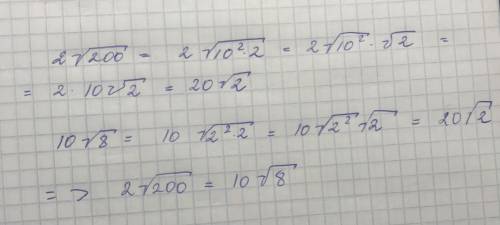 2√200 = 2√10²·2 = 2√10²·√2 =
= 2·10√2 = 20√2
10√8 = 10 √2²·2 = 10√2²√2 = 20√2
=> 2√200 = 10√8